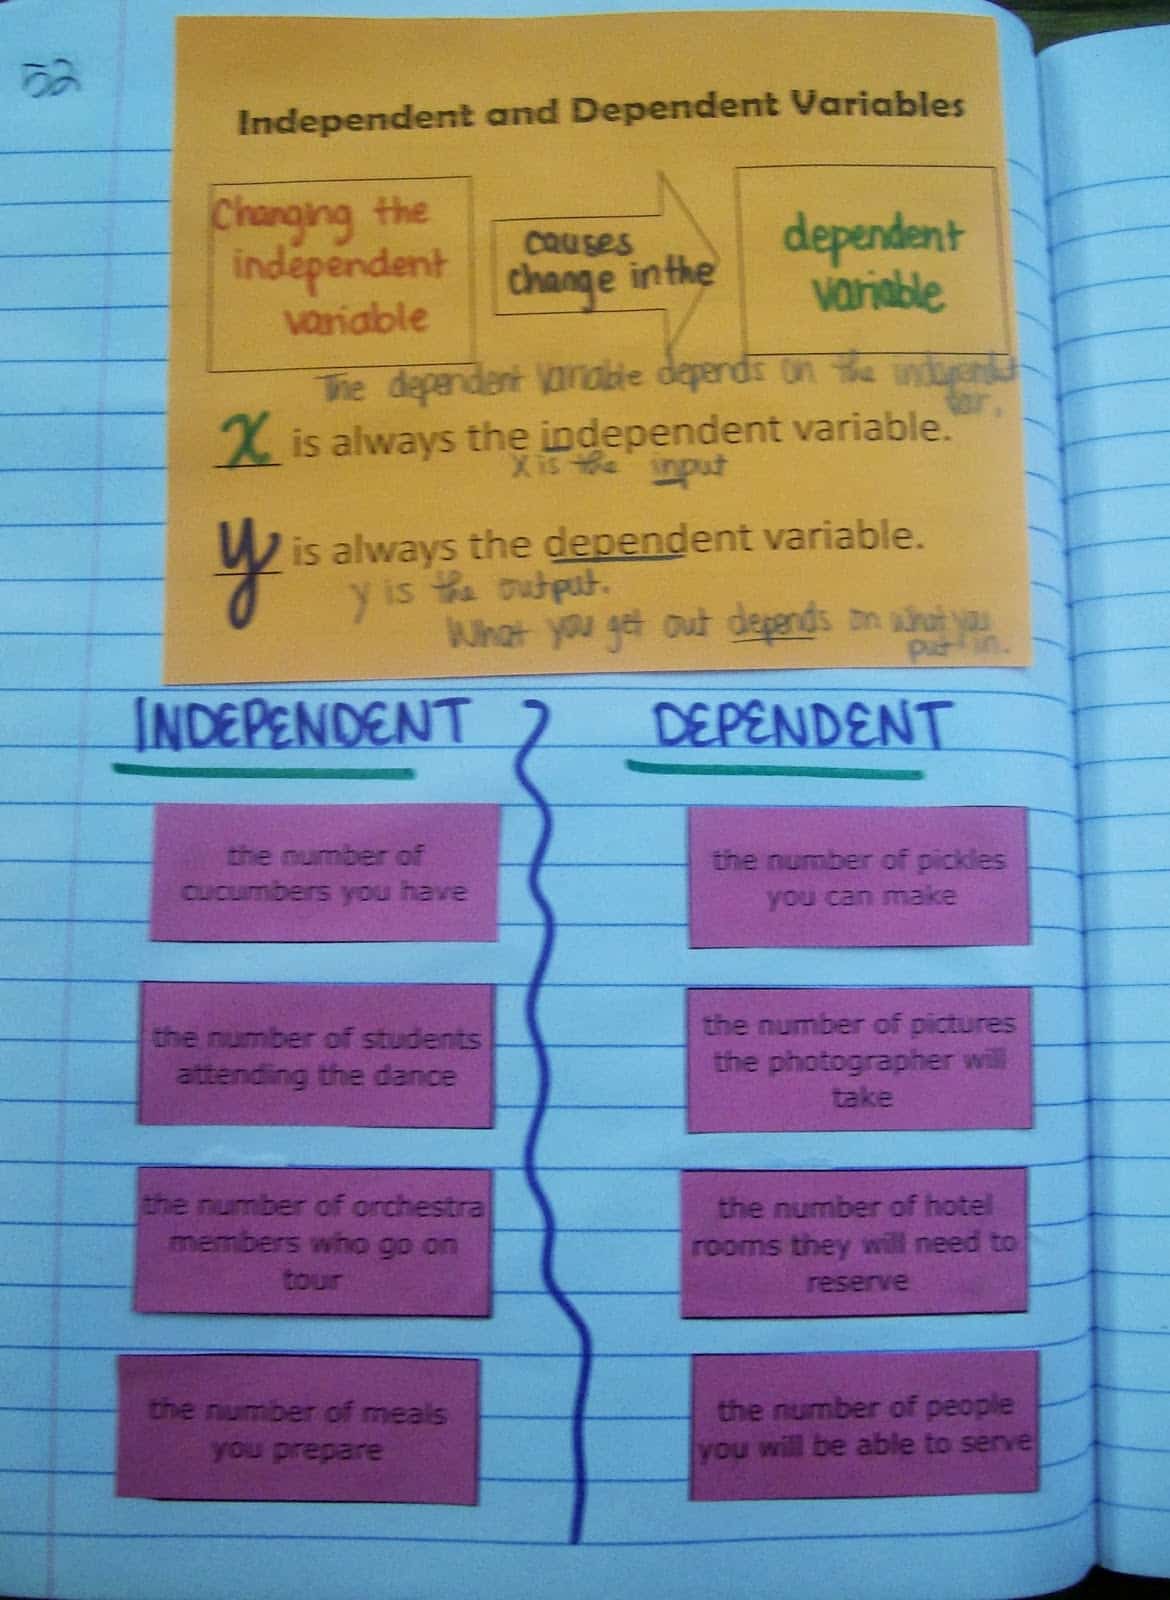 52
Independent and Dependent Variables
Changing the
independent
variable
causes
change in the
dependent
variable
The dependent variable depends on the independent
var.
x is always the independent variable.
X is the input
y is always the dependent variable.
y is the output.
What you get out depends on what you
put in.
INDEPENDENT
DEPENDENT
the number of
cucumbers you have
the number of pickles
you can make
the number of students
attending the dance
the number of pictures
the photographer will
take
the number of orchestra
members who go on
tour
the number of hotel
rooms they will need to
reserve
the number of meals
you prepare
the number of people
you will be able to serve